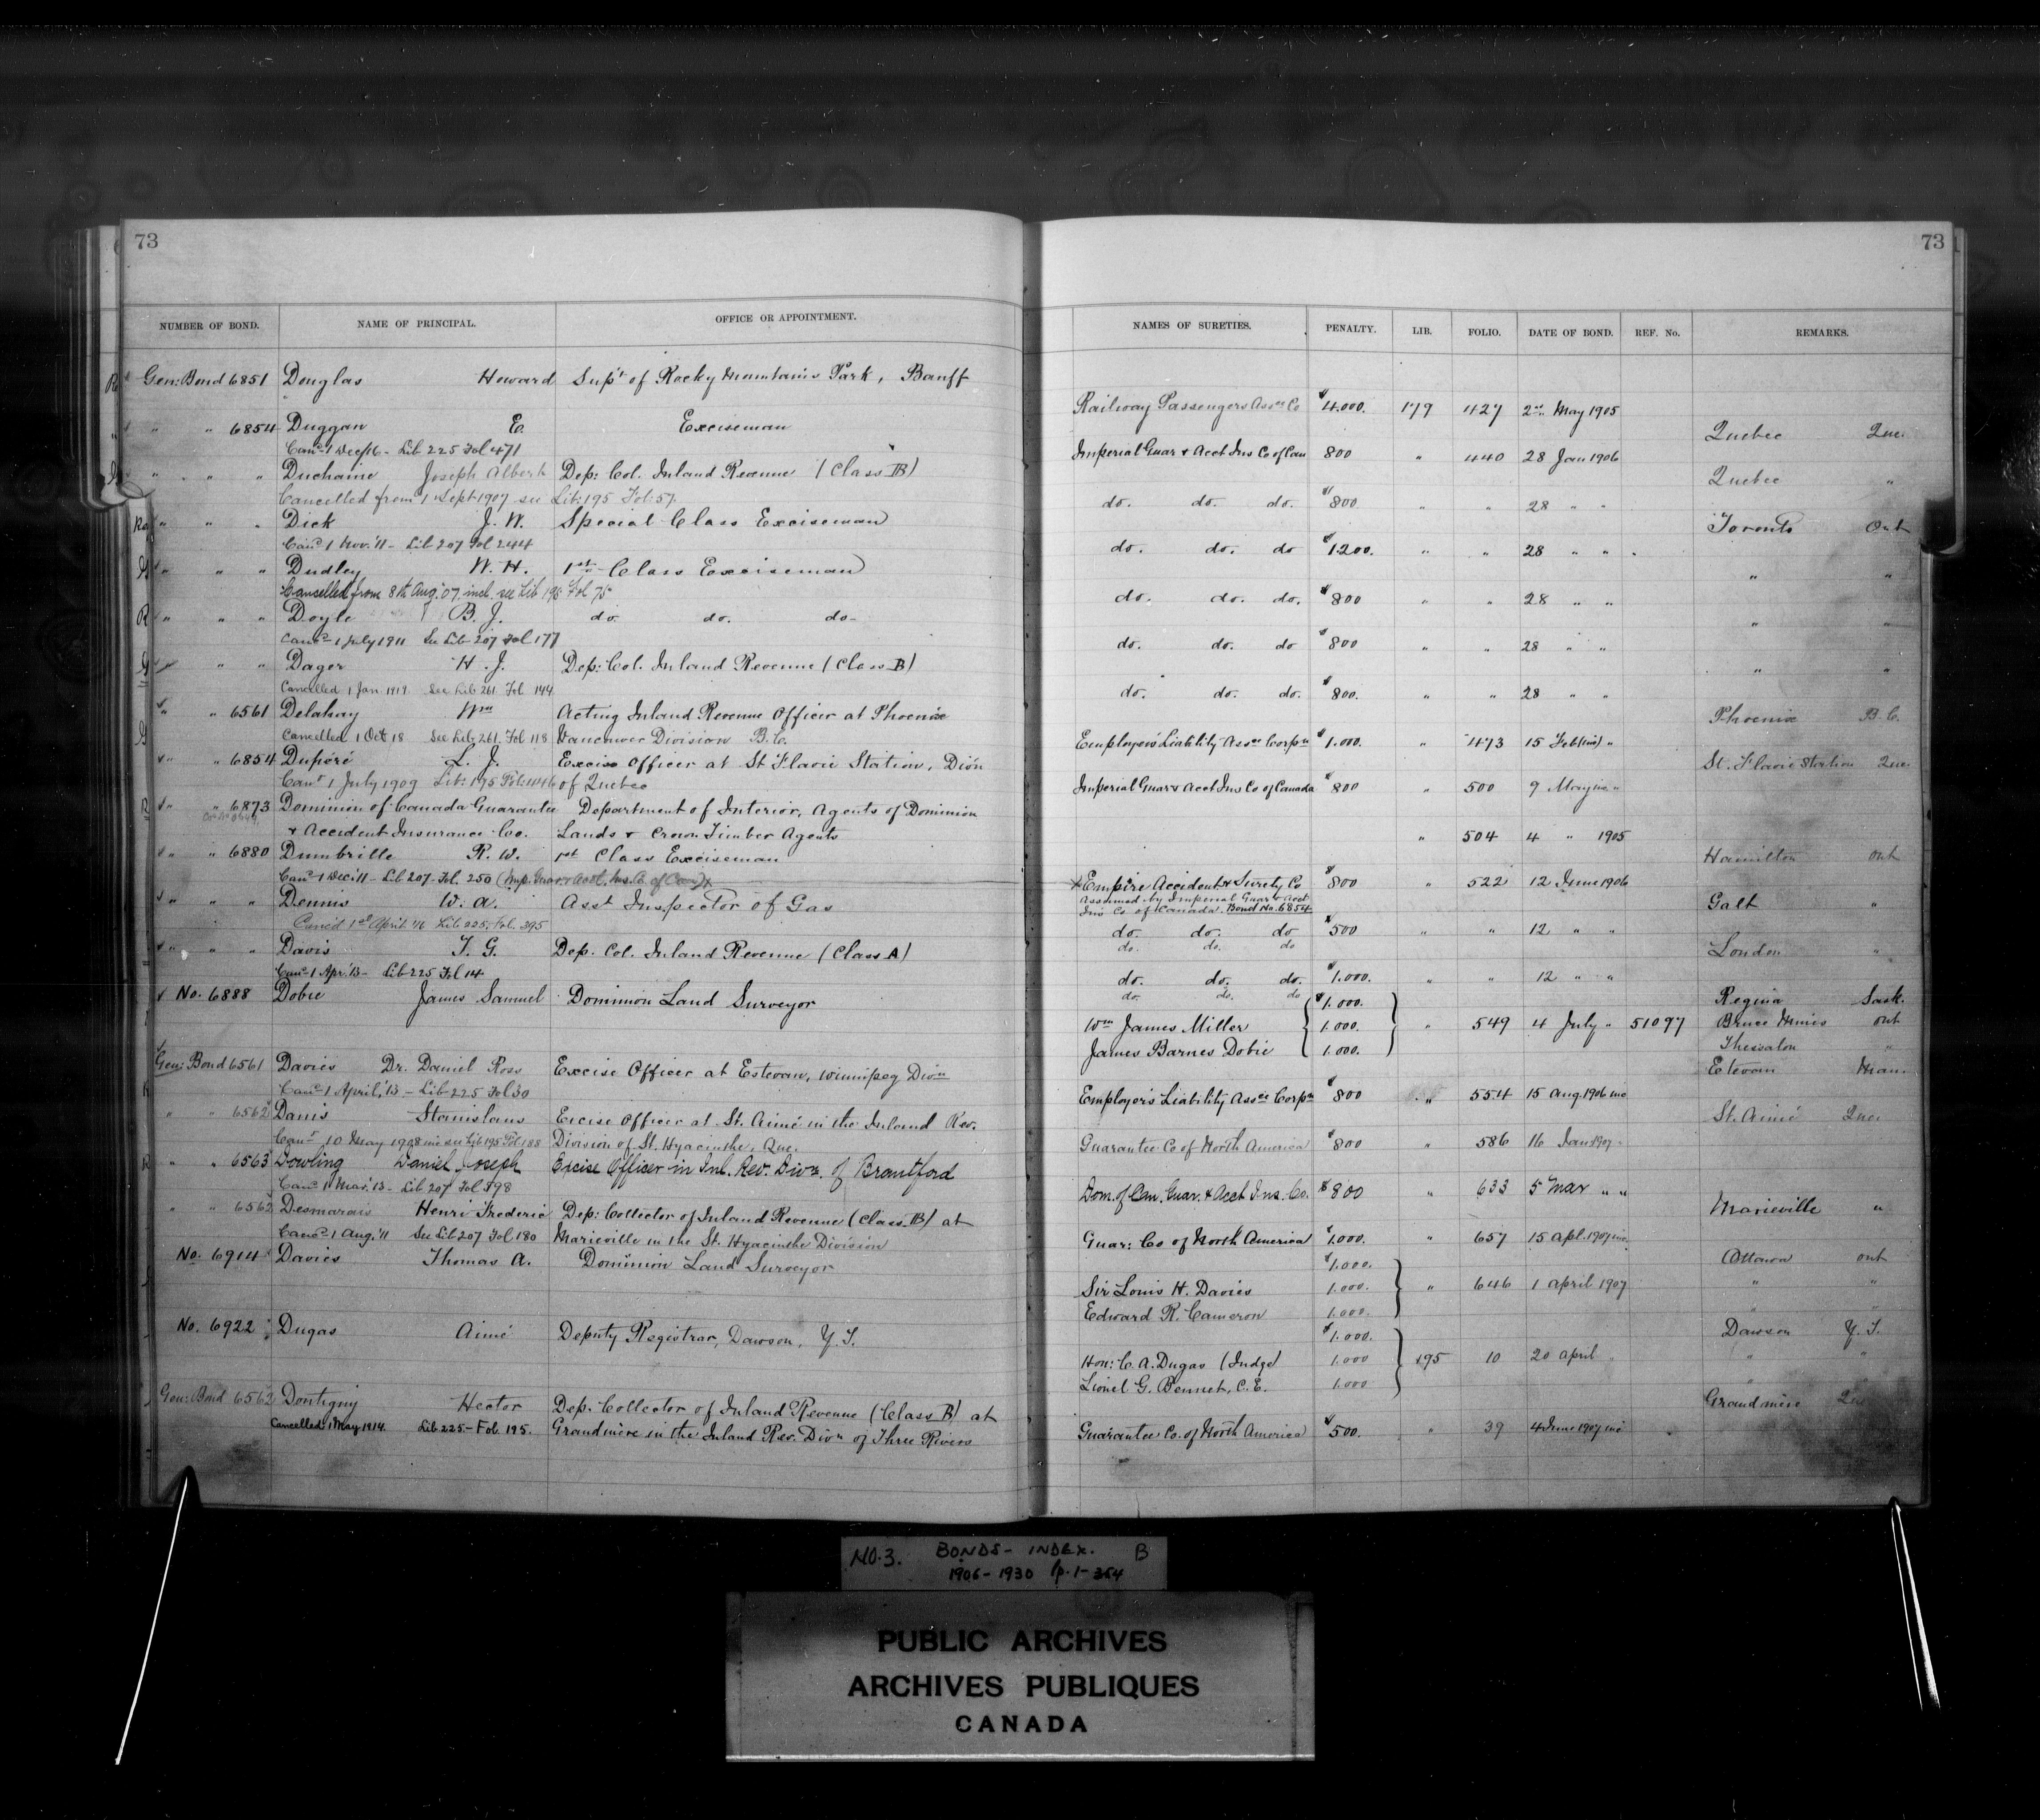 73
NUMBER OF BOND. NAME OF PRINCIPAL. OFFICE OR APPOINTMENT.
Gen: Bond 6851 Douglas Howard Supt of Rocky Mountains Park, Banff
" " 6854 Duggan E. Exciseman
Canc 1 Dec/16 - Lib 225 Fol 471
" " " Duchaine Joseph Albert Dep: Col. Inland Revenue (Class B)
Cancelled from 1 Sept 1907 see Lib: 195 Fol: 57.
" " " Dick J. W. Special Class Exciseman
Canc 1 Nov. '11 - Lib 207 Fol 244
" " " Dudley W. H. 1st Class Exciseman
Cancelled from 8th Aug. '07. incl. see Lib 195 Fol 75
" " " Doyle B. J. do. do. do.
Canc 1 July 1911 See Lib 207 Fol 177
" " " Dager H. J. Dep: Col. Inland Revenue (Class B)
Cancelled 1 Jan. 1919 See Lib 261. Fol 144
" " 6561 Delahay Wm Acting Inland Revenue Officer at Phoenix
Cancelled 1 Oct 18 See Lib. 261. Fol 118 Vancouver Division B.C.
" " 6854 Dupéré L. J. Excise Officer at St Flavie Station, Divn
Canc 1 July 1909 Lib: 195 Fol: 446 of Quebec
" " 6873 Dominion of Canada Guarantee Department of Interior, Agents of Dominion
& Accident Insurance Co. Lands & Crown Timber Agents
" " 6880 Dumbrille R. W. 1st Class Exciseman
Canc 1 Dec. '11 - Lib 207 - Fol. 250 (Imp. Guar. & Acct. Ins. Co. of Can.)
" " " Dennis W. A. Asst Inspector of Gas
Canc'd 1st April '16 Lib 225. Fol. 395
" " " Davis T. G. Dep. Col. Inland Revenue (Class A)
Canc 1 Apr. '13 - Lib 225 Fol 14
No. 6888 Dobie James Samuel Dominion Land Surveyor
Gen: Bond 6561 Davies Dr. Daniel Ross Excise Officer at Estevan, Winnipeg Divn
Canc 1 April, '13 - Lib 225 Fol 30
" " 6562 Danis Stanislaus Excise Officer at St. Aimé in the Inland Rev.
Canc 10 May 1908 inc see Lib 195 Fol 188 Division of St. Hyacinthe, Que.
" " 6563 Dowling Daniel Joseph Excise Officer in Inl. Rev. Divn. of Brantford
Canc 1 Mar. '13 - Lib 207 Fol 598
" " 6562 Desmarais Henri Frederic Dep: Collector of Inland Revenue (Class B) at
Canc 1 Aug. '11 See Lib 207 Fol 180 Marieville in the St. Hyacinthe Division
No. 6914 Davies Thomas A. Dominion Land Surveyor
No. 6922 Dugas Aimé Deputy Registrar, Dawson, Y. T.
Gen: Bond 6562 Dontigny Hector Dep. Collector of Inland Revenue (Class B) at
Cancelled 1 May 1914. Lib 225 - Fol. 195. Grandmère in the Inland Rev. Divn of Three Rivers
73
NAMES OF SURETIES. PENALTY. LIB. FOLIO. DATE OF BOND. REF. No. REMARKS.
Railway Passengers Assce Co $4.000. 179 427 2nd May 1905
Quebec Que.
Imperial Guar & Acct Ins Co of Can 800 " 440 28 Jan 1906
Quebec "
do. do. do. $800 " " 28 " "
Toronto Ont
do. do. do $1.200. " " 28 " "
" "
do. do. do. $800 " " 28 " "
" "
do. do. do $800 " " 28 " "
" "
do. do. do. $800. " " 28 " "
Phoenix B.C.
Employers Liability Assce Corpn $1.000. " 473 15 Feb (inc) "
St. Flavie Station Que
Imperial Guar & Acct Ins Co of Canada $800 " 500 9 May inc "
" 504 4 " 1905
Hamilton Ont
*Empire Accident & Surety Co $800 " 522 12 June 1906
Assumed by Imperial Guar & Acct
Ins Co of Canada. Bond No. 6854
Galt "
do. do. do $500 " " 12 " "
do. do. do
London "
do. do. do. $1.000. " " 12 " "
do. do. do
$1.000. Regina Sask.
Wm James Miller 1.000. " 549 4 July " 51097 Bruce Mines Ont
James Barnes Dobie 1.000. Thessalon "
Estevan Man.
Employers Liability Assce Corpn $800 " 554 15 Aug. 1906 inc
St. Aimé Que.
Guarantee Co of North America $800 " 586 16 Jan 1907
Dom. of Can. Guar. & Acct Ins. Co. $800 " 633 5 Mar " "
Marieville "
Guar: Co of North America $1.000. " 657 15 Apl. 1907 inc.
$1.000. Ottawa Ont
Sir Louis H. Davies 1.000. " 646 1 April 1907 " "
Edward R. Cameron 1.000. "
$1.000. Dawson Y. T.
Hon: C. A. Dugas (Judge) 1.000 195 10 20 April " " "
Lionel G. Bennet, C. E. 1.000 "
Grandmère Que
Guarantee Co. of North America $500. " 39 4 June 1907 inc
NO. 3. BONDS - INDEX. B
1906 - 1930 p. 1 - 354
PUBLIC ARCHIVES
ARCHIVES PUBLIQUES
CANADA